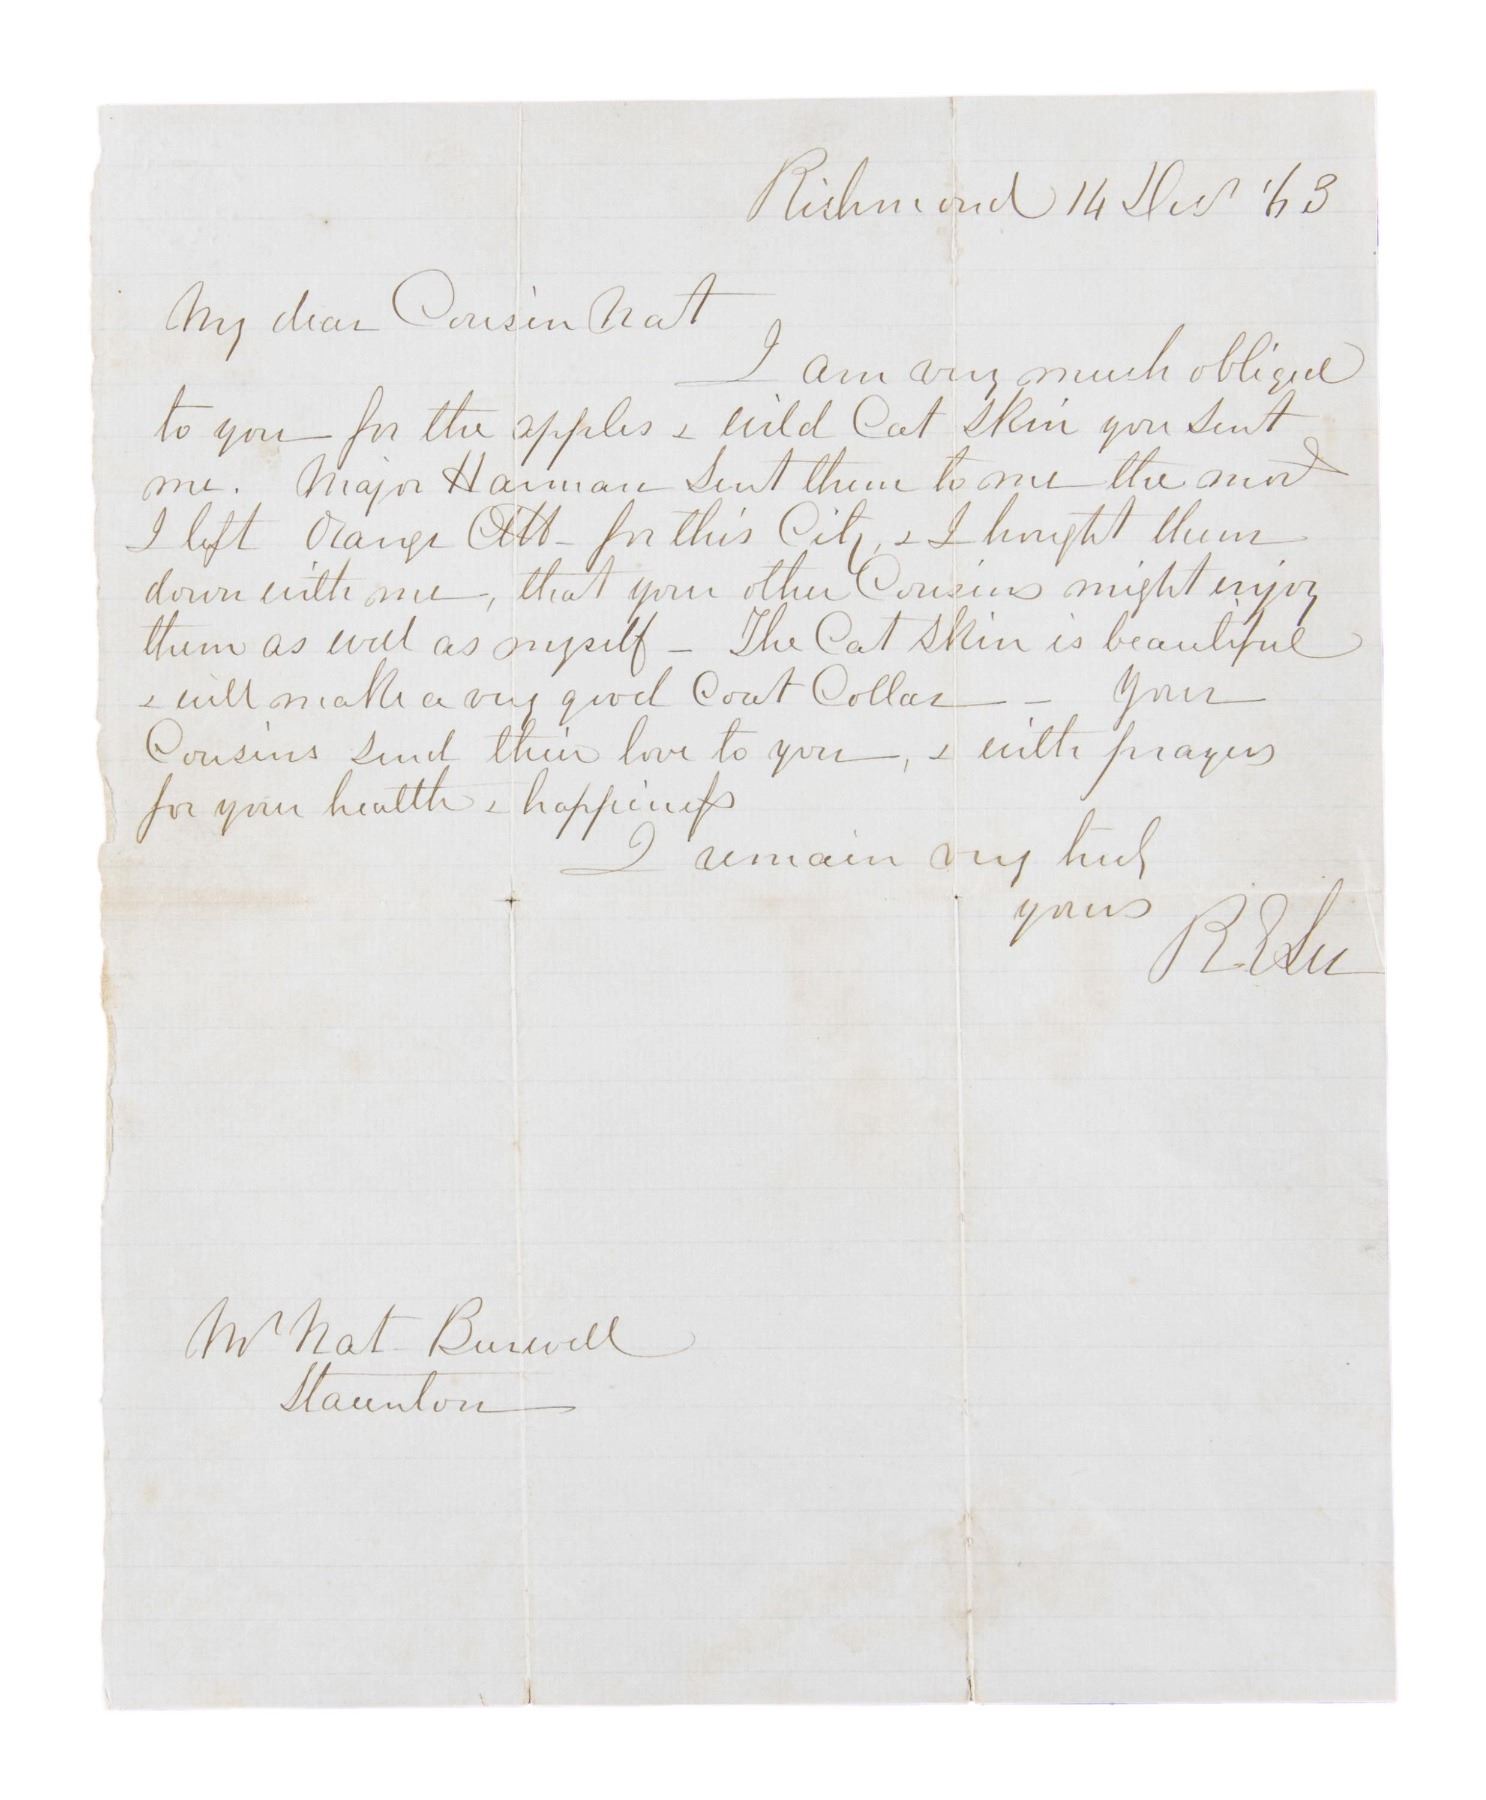 Richmond 14 Decr '63
My dear Cousin Nat
I am very much obliged
to you for the apples & wild Cat skin you sent
me. Major Harman sent them to me the mor
I left Orange for this City, & I brought them
down with me, that your other Cousins might enjoy
them as well as myself – The Cat skin is beautiful
& will make a very good Coat Collar – Your
Cousins send their love to you, & with prayers
for your health & happiness
I remain very truly
yours
R. E Lee
Mr Nat Burwell
Staunton